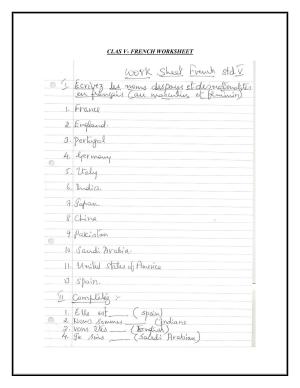 CLAS V- FRENCH WORKSHEET
Work Sheet French std V
I Ecrivez les noms des pays et des nationalités
en français (au masculin et féminin)
1. France
2. England
3. Portugal
4. Germany
5. Italy
6. India
7. Japan
8. China
9. Pakistan
10. Saudi Arabia
11. United States of America
12. Spain
II Complétez :-
1. Elle est ____ (Spain)
2. Nous sommes ____ (Indians
3. Vous êtes ____ ( )
4. Je suis ____ (Saudi Arabian)